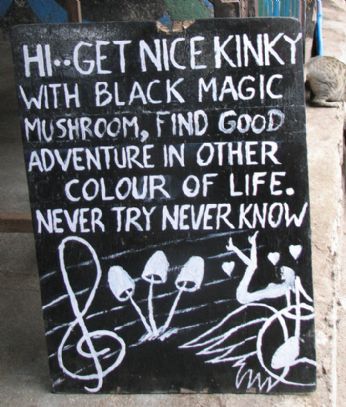 HI..GET NICE KINKY
WITH BLACK MAGIC
MUSHROOM, FIND GOOD
ADVENTURE IN OTHER
COLOUR OF LIFE.
NEVER TRY NEVER KNOW